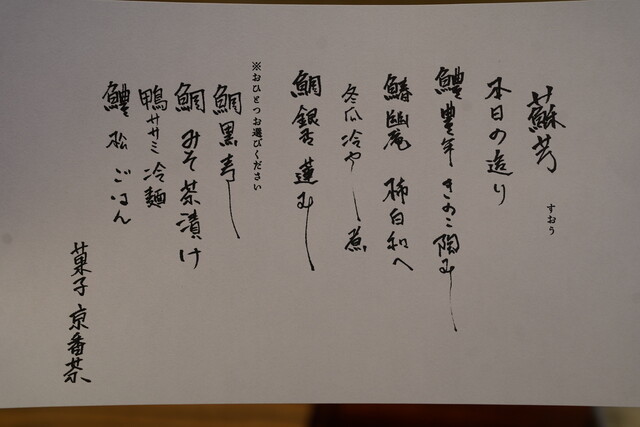 蘇芳
すおう
本日の造り
鱧 豊年 きのこ陶むし
鰆幽庵 柿白和へ
冬瓜冷やし煮
鯛銀杏蓮むし
※おひとつお選びください
鯛黒寿し
鯛みそ茶漬け
鴨ササミ冷麺
鱧 松 ごはん
菓子 京番茶